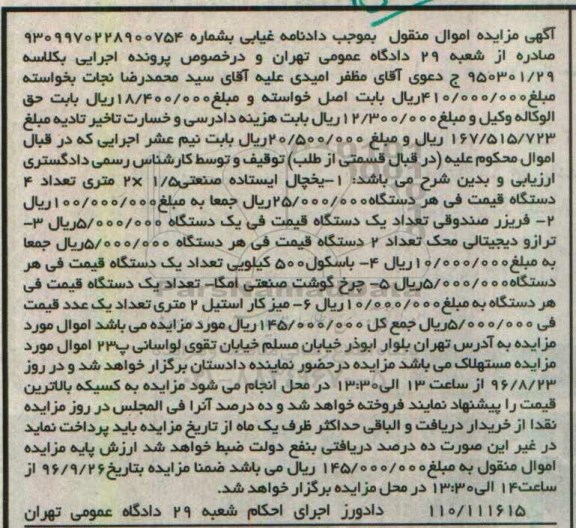 آگهی مزایده اموال منقول بموجب دادنامه غیابی بشماره ۹۳۰۹۹۷۰۲۲۸۹۰۰۷۵۴
صادره از شعبه ۲۹ دادگاه عمومی تهران و درخصوص پرونده اجرایی بکلاسه
۹۵۰۳۰۱/۲۹ ج دعوی آقای مظفر امیدی علیه آقای سید محمدرضا نجات بخواسته
مبلغ۴۱۰/۰۰۰/۰۰۰ریال بابت اصل خواسته و مبلغ۱۸/۴۰۰/۰۰۰ریال بابت حق
الوکاله وکیل و مبلغ۱۲/۳۰۰/۰۰۰ریال بابت هزینه دادرسی و خسارت تاخیر تادیه مبلغ
۱۶۷/۵۱۵/۷۲۳ ریال و مبلغ ۲۰/۵۰۰/۰۰۰ریال بابت نیم عشر اجرایی که در قبال
اموال محکوم علیه (در قبال قسمتی از طلب) توقیف و توسط کارشناس رسمی دادگستری
ارزیابی و بدین شرح می باشد: ۱-یخچال ایستاده صنعتی۱/۵ ×۲ متری تعداد ۴
دستگاه قیمت فی هر دستگاه۲۵/۰۰۰/۰۰۰ریال جمعا به مبلغ۱۰۰/۰۰۰/۰۰۰ریال
۲- فریزر صندوقی تعداد یک دستگاه قیمت فی یک دستگاه ۵/۰۰۰/۰۰۰ریال ۳-
ترازو دیجیتالی محک تعداد ۲ دستگاه قیمت فی هر دستگاه ۵/۰۰۰/۰۰۰ریال جمعا
به مبلغ۱۰/۰۰۰/۰۰۰ریال ۴- باسکول۵۰۰ کیلویی تعداد یک دستگاه قیمت فی هر
دستگاه۵/۰۰۰/۰۰۰ریال ۵- چرخ گوشت صنعتی امگا- تعداد یک دستگاه قیمت فی
هر دستگاه به مبلغ۱۰/۰۰۰/۰۰۰ریال ۶- میز کار استیل ۲ متری تعداد یک عدد قیمت
فی ۵/۰۰۰/۰۰۰ریال جمع کل ۱۴۵/۰۰۰/۰۰۰ریال مورد مزایده می باشد اموال مورد
مزایده به آدرس تهران بلوار ابوذر خیابان مسلم خیابان تقوی لواسانی پ۲۳ اموال مورد
مزایده مستهلاک می باشد مزایده درحضور نماینده دادستان برگزار خواهد شد و در روز
۹۶/۸/۲۳ از ساعت ۱۳ الی۱۳:۳۰ در محل انجام می شود مزایده به کسیکه بالاترین
قیمت را پیشنهاد نمایند فروخته خواهد شد و ده درصد آنرا فی المجلس در روز مزایده
نقدا از خریدار دریافت و الباقی حداکثر ظرف یک ماه از تاریخ مزایده باید پرداخت نماید
در غیر این صورت ده درصد دریافتی بنفع دولت ضبط خواهد شد ارزش پایه مزایده
اموال منقول به مبلغ۱۴۵/۰۰۰/۰۰۰ ریال می باشد ضمنا مزایده بتاریخ۹۶/۹/۲۶ از
ساعت۱۴ الی۱۳:۳۰ در محل مزایده برگزار خواهد شد.
۱۱۰/۱۱۱۶۱۵ دادورز اجرای احکام شعبه ۲۹ دادگاه عمومی تهران